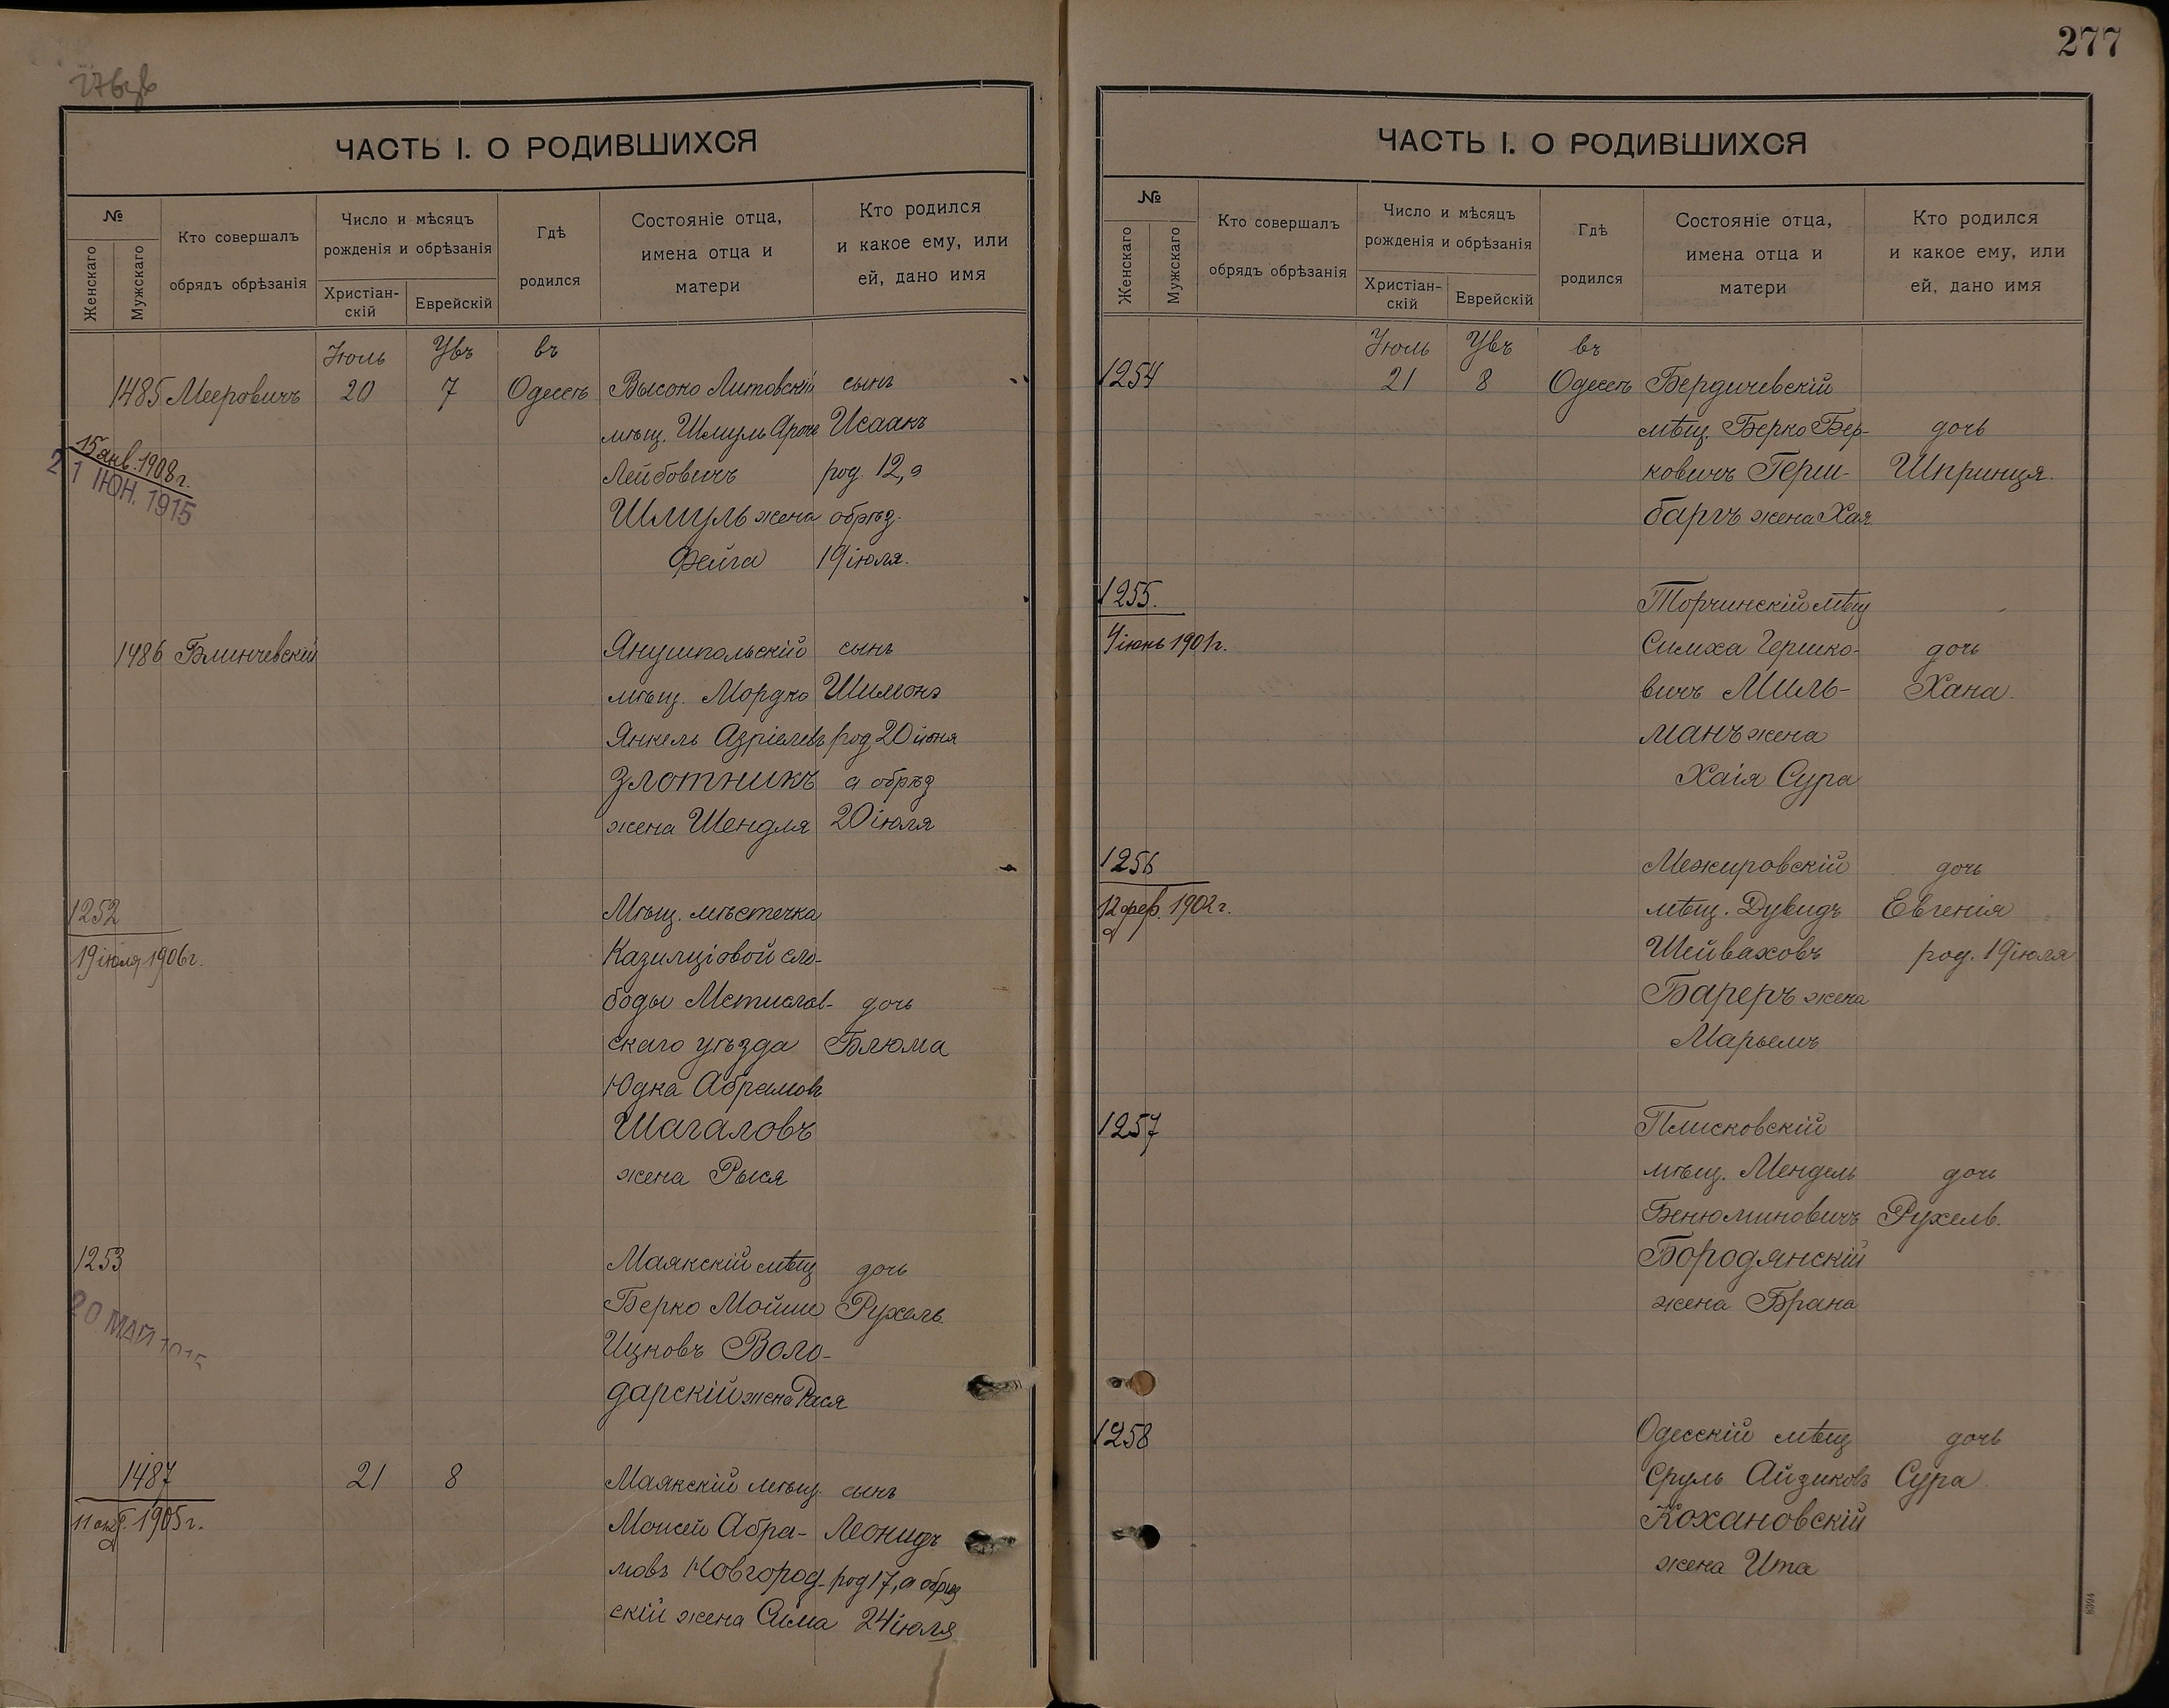 276об
ЧАСТЬ I. О РОДИВШИХСЯ
№
Женскаго
Мужскаго
Кто совершалъ
обрядъ обрѣзанія
Число и мѣсяцъ
рожденія и обрѣзанія
Христіан-
скій
Еврейскій
Гдѣ
родился
Состояніе отца,
имена отца и
матери
Кто родился
и какое ему, или
ей, дано имя
Іюль Увъ въ
1485 Мееровичъ 20 7 Одессѣ Высоко Литовскій сынъ
мѣщ. Шмуль Исаакъ
15 янв. 1908 г.
21 ІЮН. 1915
Лейбовичъ род. 12, а
Шмуль жена обрѣз.
Фейга 19 іюля.
1486 Блинчевскій Янушпольскій сынъ
мѣщ. Мордко Шимонъ
Янкель Азріелевъ род 20 іюня
Злотникъ а обрѣз
жена Шендля 20 іюля
1252 Мѣщ. мѣстечка
19 іюля 1906 г. Казиміровой сло-
боды Мстислав- дочь
скаго уѣзда Блюма
Юдка Абрамовъ
Шагаловъ
жена Рыся
1253 Маякскій мѣщ дочь
20 МАЙ 1915 Берко Мойше Рухель.
Ицковъ Воло-
дарскій жена Рася
1487 21 8 Маякскій мѣщ. сынъ
1905 г. Моисей Абра- Леонидъ
мовъ Новгород- род 17, а обрѣз
скій жена Сима 24 іюля
277
ЧАСТЬ I. О РОДИВШИХСЯ
№
Женскаго
Мужскаго
Кто совершалъ
обрядъ обрѣзанія
Число и мѣсяцъ
рожденія и обрѣзанія
Христіан-
скій
Еврейскій
Гдѣ
родился
Состояніе отца,
имена отца и
матери
Кто родился
и какое ему, или
ей, дано имя
Іюль Увъ въ
1254 21 8 Одессѣ Бердичевскій
мѣщ. Берко Бер- дочь
ковичъ Герш- Шпринця.
баргъ жена Хая
1255. Торчинскій мѣщ
4 іюнь 1901 г. Симха Гершко- дочь
вичъ Миль- Хана.
манъ жена
Хаія Сура
1256 Межировскій дочь
12 фев. 1902 г. мѣщ. Дувидъ Евгенія
Шейваховъ род. 19 іюля
Бареръ жена
Марьемъ
1257 Плисковскій
мѣщ. Мендель дочь
Бенюминовичъ Рухель.
Бородянскій
жена Брана
1258 Одесскій мѣщ дочь
Сруль Айзиковъ Сура
Кохановскій
жена Ита